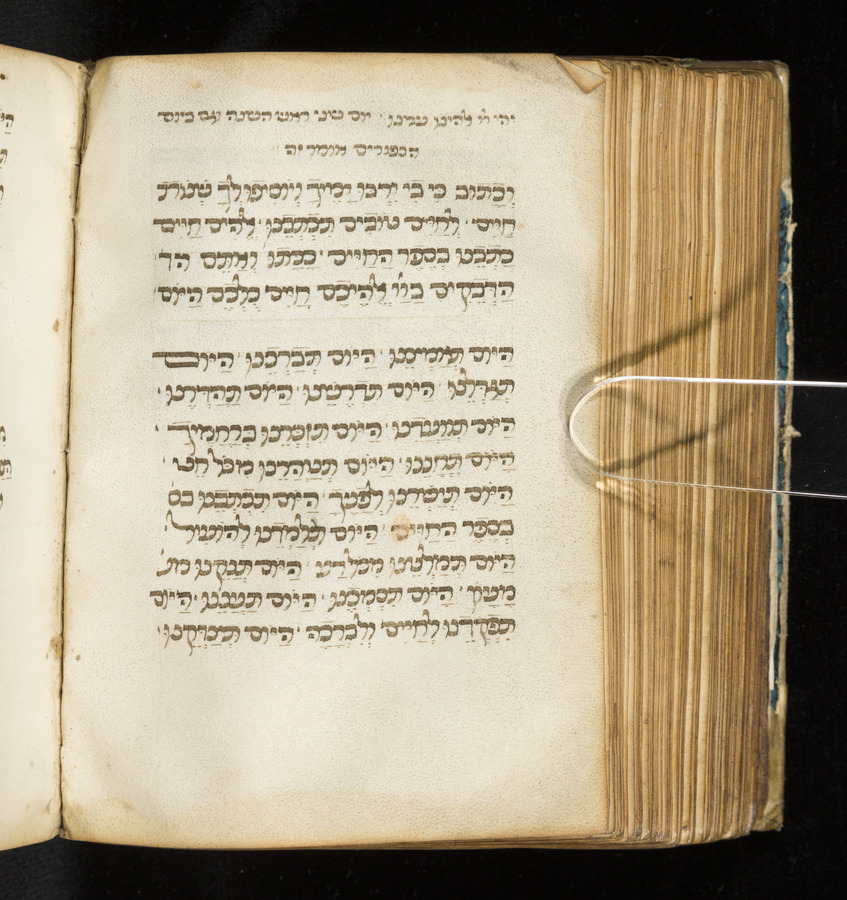 ויהי יי להינו עלינו יום שני ראש השנה עם ביום
הכפורים אומר זה
וכתוב כי בי ירבו ימיך ויוסיפו לך שנות
חיים לחיים טובים תכתבנו אלהים חיים
כתבנו בספר החיים ככתו ואתם הד
הדבקים ביי אלהיכם חיים כלכם היום
היום תאמיצנו היום תברכנו היום
תגדלנו היום תדרשינו היום תהדרנו
היום תועדנו היום תזכרנו ברחמיך
היום תחננו היום תטהרנו מכל חט
היום תישרנו לפניך היום תכתבנו בס
בספר החיים היום תלמדנו להועיל
היום תמלטנו מכל רע היום תנקנו מע
מעון היום תסמכנו היום תעננו היום
תפקדנו לחיים ולברכה היום תצדקנו